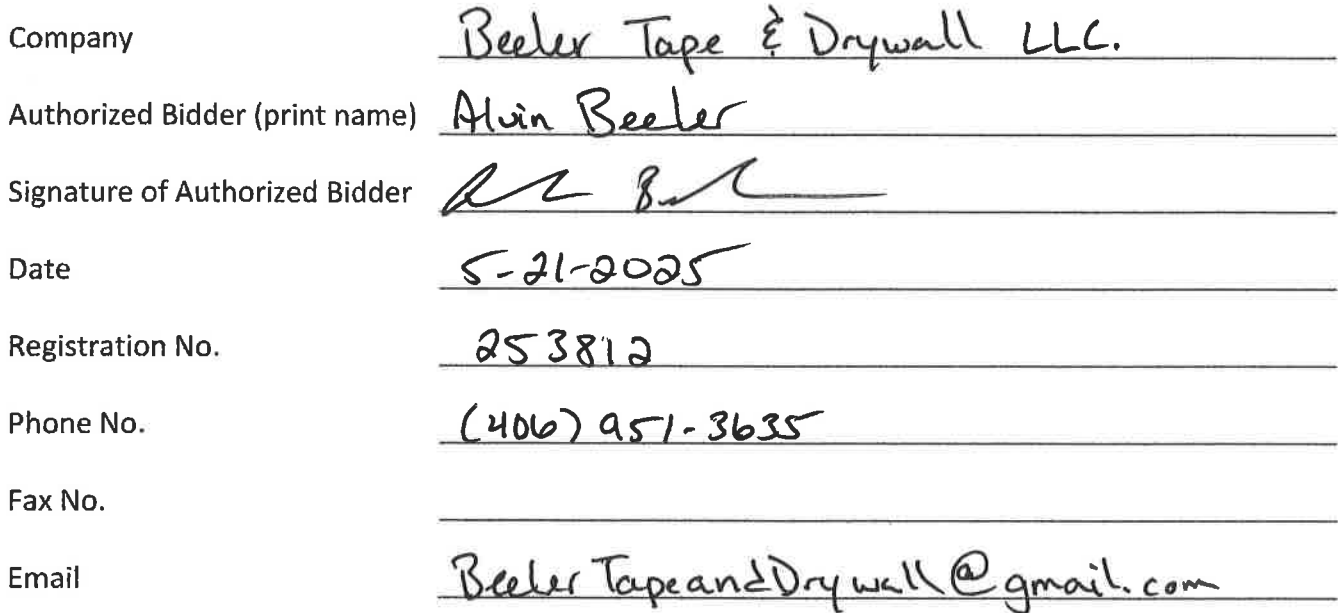 Company Beeler Tape & Drywall LLC.
Authorized Bidder (print name) Alvin Beeler
Signature of Authorized Bidder
Date 5-21-2025
Registration No. 253812
Phone No. (406) 951-3635
Fax No.
Email BeelerTapeandDrywall@gmail.com